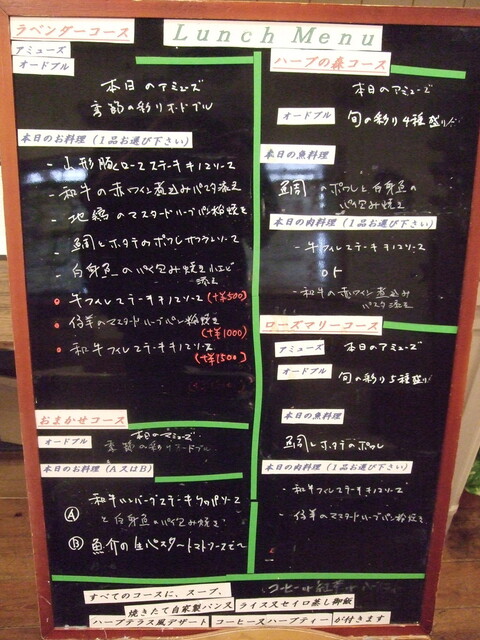 Lunch Menu
ラベンダーコース
アミューズ
オードブル
本日のアミューズ
季節の彩りオードブル
本日のお料理（1品お選び下さい）
- 山形豚ロースステーキキノコソース
- 和牛の赤ワイン煮込みパスタ添え
- 地鶏のマスタードハーブパン粉焼き
- 鯛とホタテのポワレオマールソース
- 白身魚のパイ包み焼き小エビ
添え
• 牛フィレステーキキノコソース (+¥500)
• 仔羊のマスタードハーブパン粉焼き
(+¥1000)
• 和牛フィレステーキキノコソース
(+¥1500)
おまかせコース
オードブル
本日のアミューズ
季節の彩りオードブル
本日のお料理（A又はB）
Ⓐ 和牛ハンバーグステーキ
と白身魚のパイ包み焼き
Ⓑ 魚介の生パスタトマトソースで
ハーブの森コース
本日のアミューズ
オードブル
旬の彩り4種盛り
本日の魚料理
鯛のポワレと白身魚の
パイ包み焼き
本日の肉料理（1品お選び下さい）
- 牛フィレステーキキノコソース
or
- 和牛の赤ワイン煮込み
パスタ添え
ローズマリーコース
アミューズ
本日のアミューズ
オードブル
旬の彩り5種盛り
本日の魚料理
鯛とホタテのポワレ
本日の肉料理（1品お選び下さい）
- 和牛フィレステーキキノコソース
- 仔羊のマスタードハーブパン粉焼き
すべてのコースに、スープ、
焼きたて自家製パン又 ライス又セイロ蒸し御飯
ハーブテラス風デザート コーヒー又ハーブティー が付きます